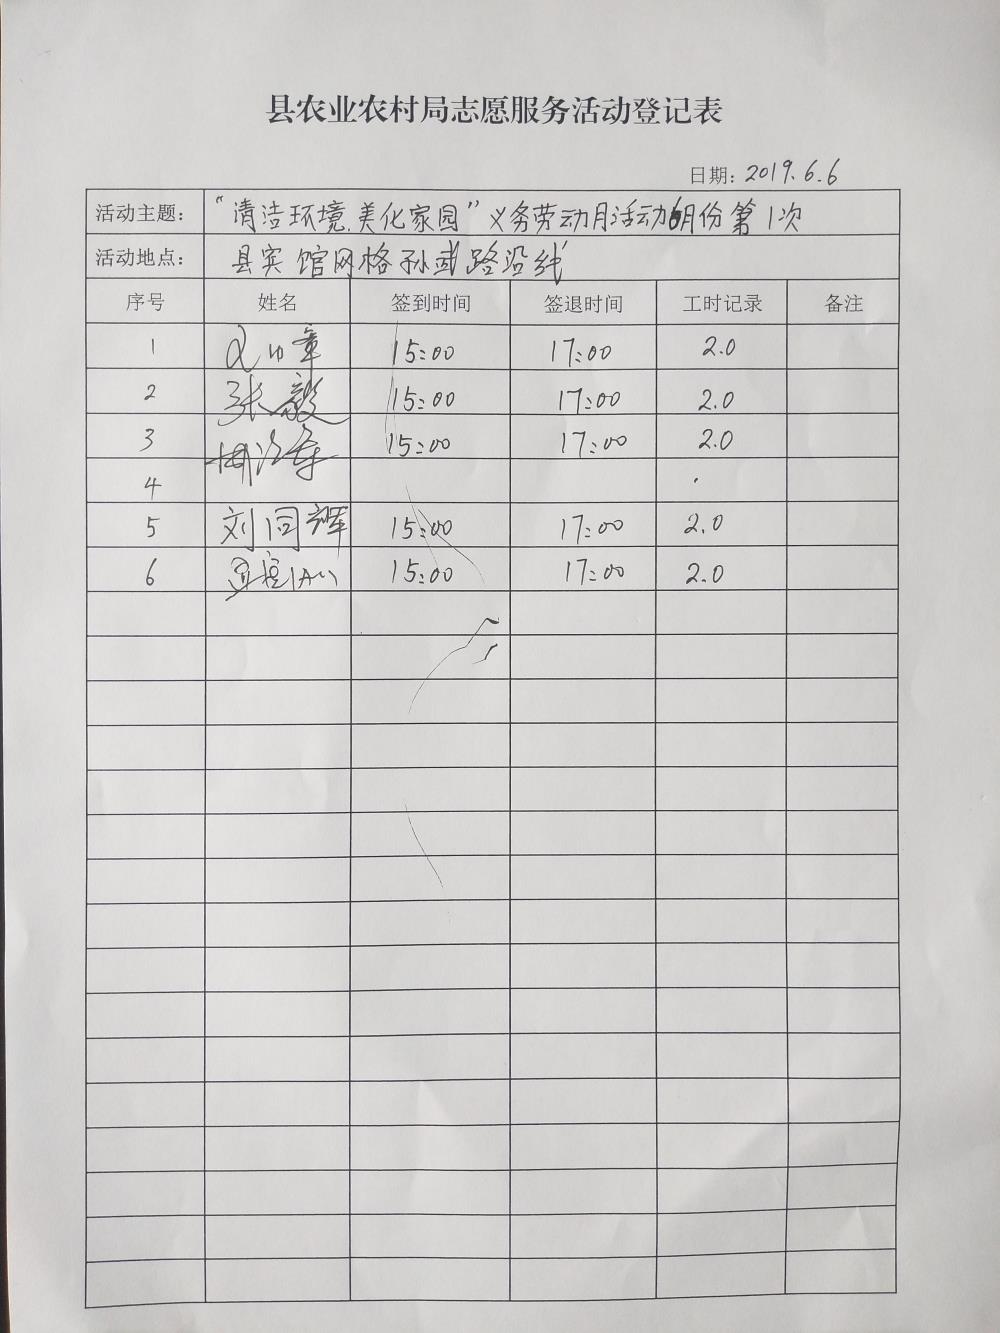 县农业农村局志愿服务活动登记表
日期：2019.6.6
活动主题： “清洁环境.美化家园”义务劳动月活动6月份第1次
活动地点： 县宾馆网格孙武路沿线
序号 姓名 签到时间 签退时间 工时记录 备注
1 15:00 17:00 2.0
2 张毅 15:00 17:00 2.0
3 15:00 17:00 2.0
4
5 刘同辉 15:00 17:00 2.0
6 15:00 17:00 2.0